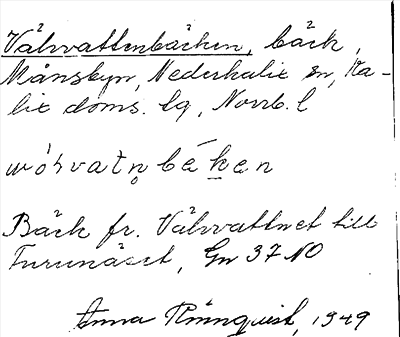 Vålvattenbäcken, bäck,
Månsbyn, Nederkalix sn, Ka-
lix doms. lg, Norrb. l
Bäck fr. Vålvattnet till
Furunäset, Gn 37 NO
Anna Rönnquist, 1949